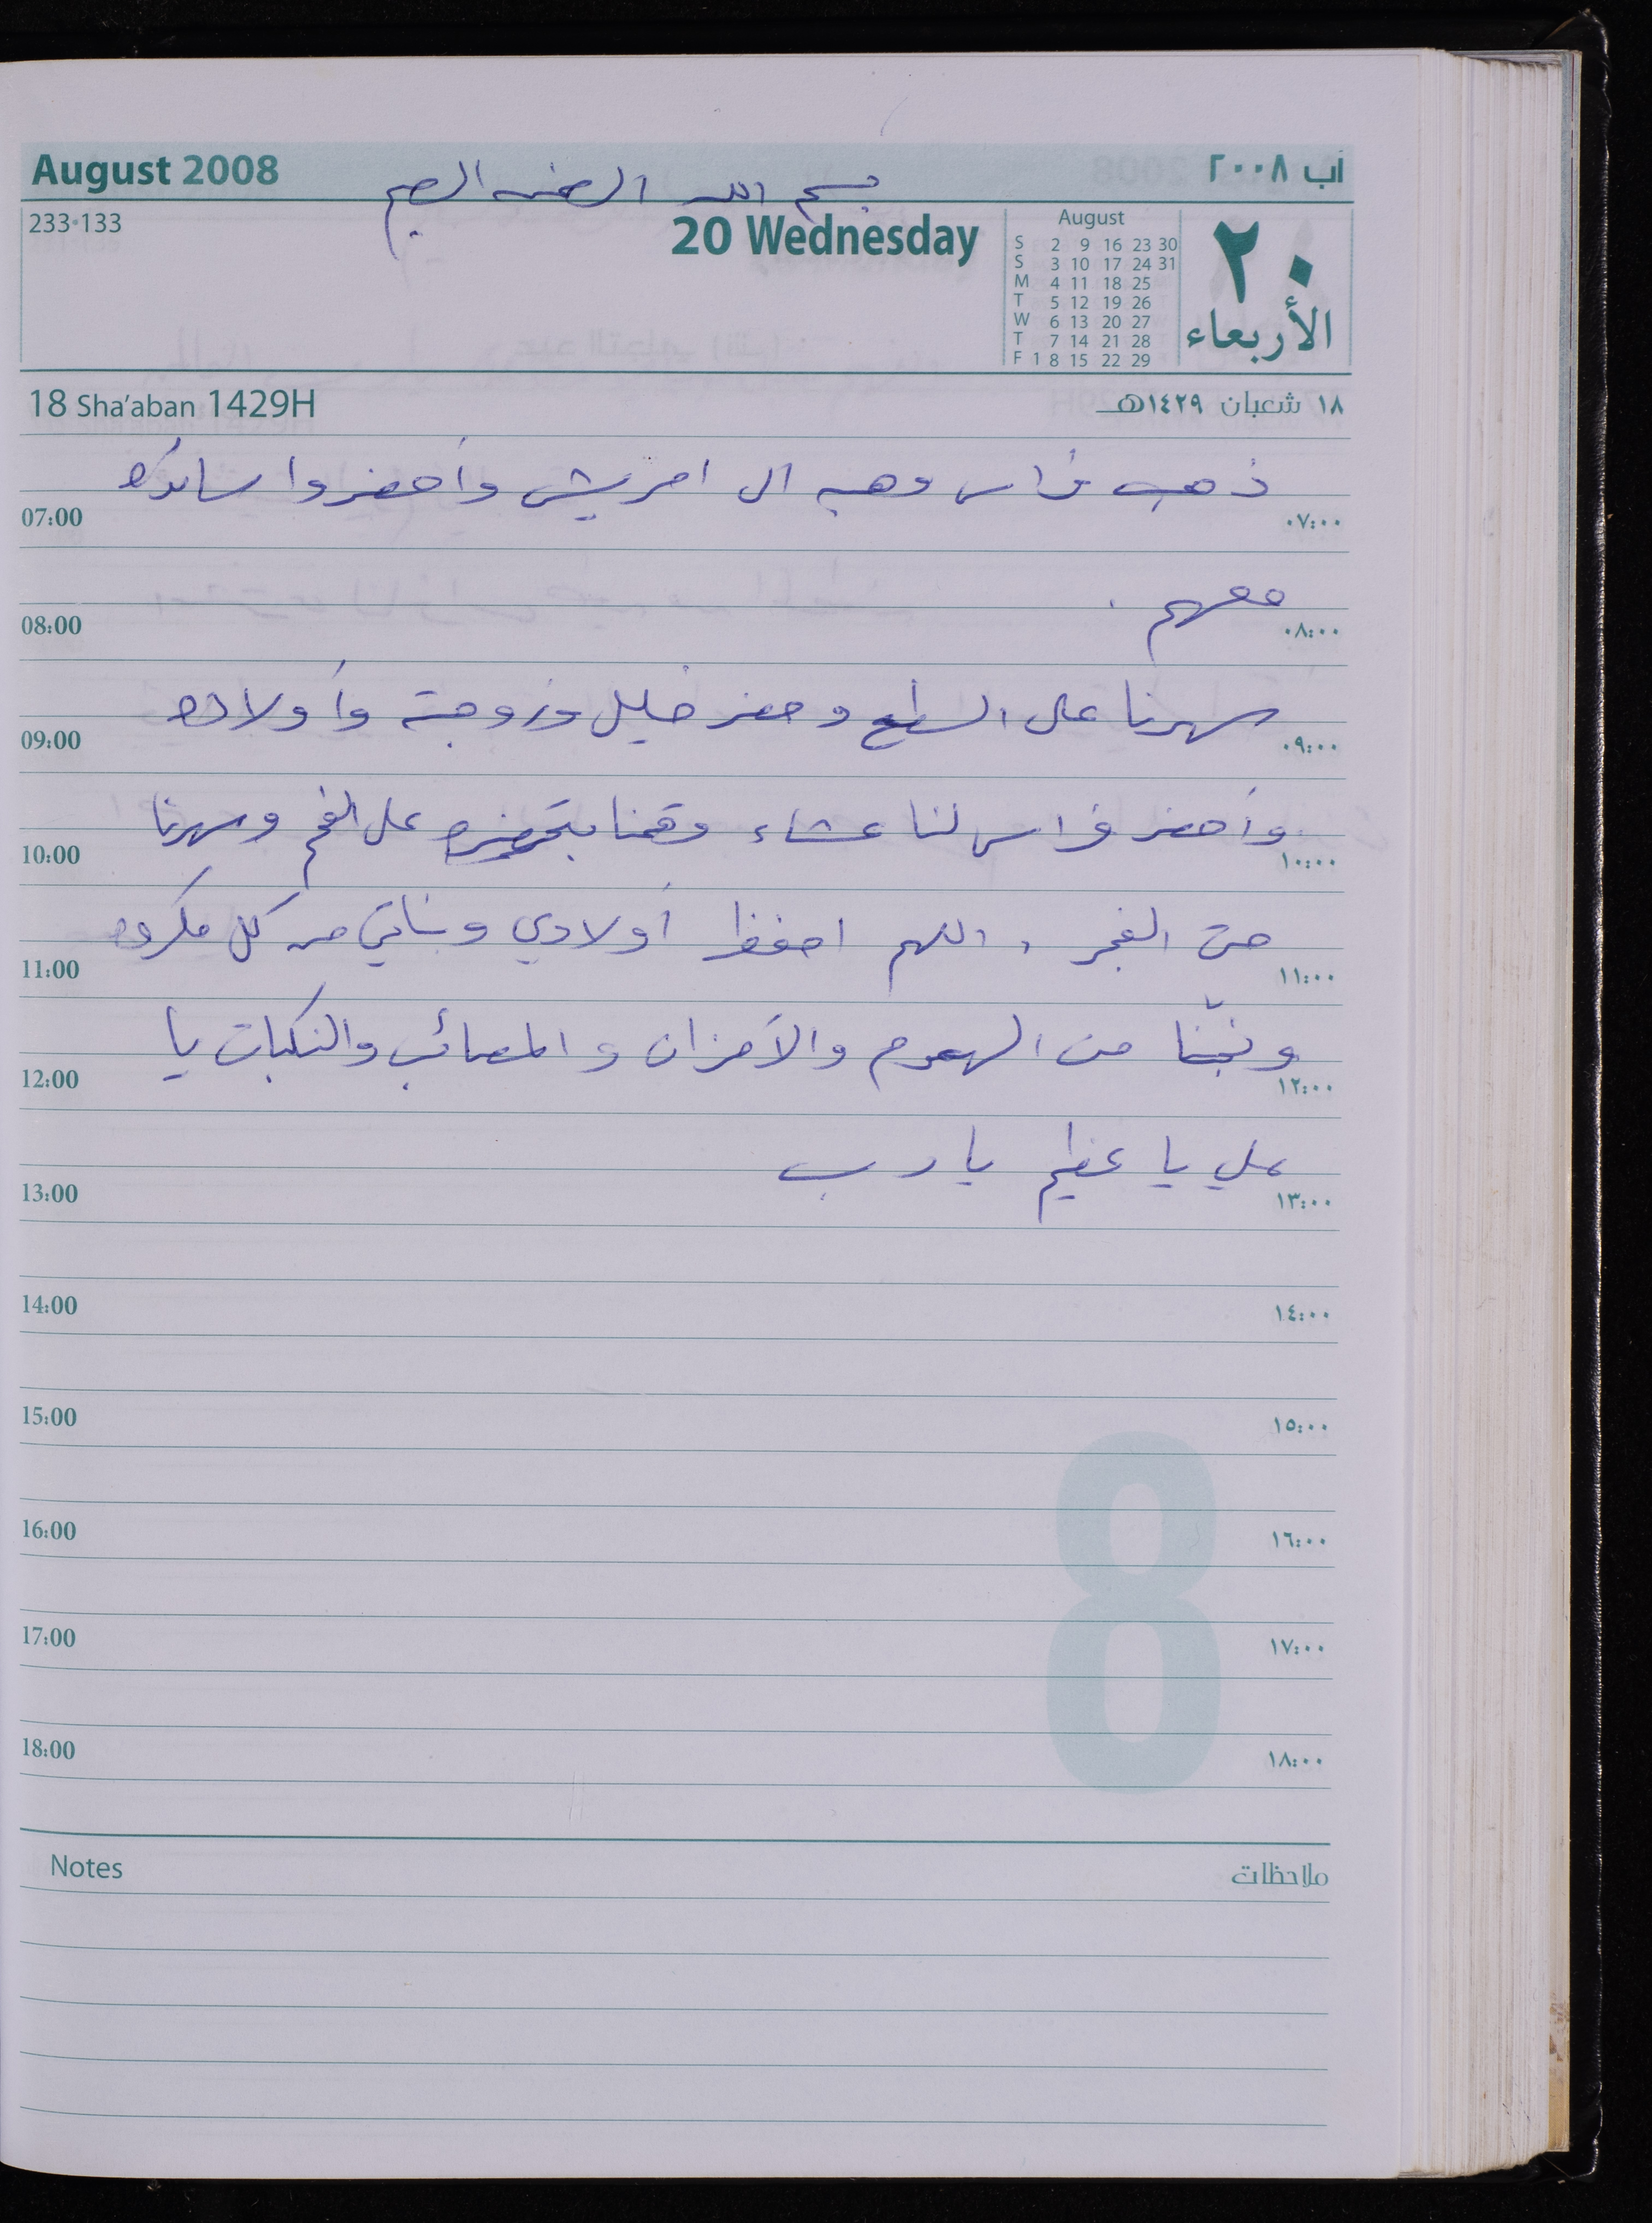 August 2008
آب ٢٠٠٨
بسم الله الرحمن الرحيم
233-133
20 Wednesday
August
S 2 9 16 23 30
S 3 10 17 24 31
M 4 11 18 25
T 5 12 19 26
W 6 13 20 27
T 7 14 21 28
F 1 8 15 22 29
٢٠
الأربعاء
18 Sha'aban 1429H
١٨ شعبان ١٤٢٩هـ
ذهب فراس وهبه الى امريش وأحضروا
07:00 ٠٧:٠٠
معهم .
08:00 ٠٨:٠٠
سهرنا على السطح وحضر خليل وزوجته وأولاده
09:00 ٠٩:٠٠
وأحضر فراس لنا عشاء وقمنا بتحضيره على الفحم وسهرنا
10:00 ١٠:٠٠
حتى الفجر ، اللهم احفظ أولادي وبناتي من كل مكروه
11:00 ١١:٠٠
ونجّنا من الهموم والأحزان والمصائب والنكبات يا
12:00 ١٢:٠٠
علي يا عظيم يا رب
13:00 ١٣:٠٠
14:00 ١٤:٠٠
15:00 ١٥:٠٠
16:00 ١٦:٠٠
17:00 ١٧:٠٠
18:00 ١٨:٠٠
8
Notes
ملاحظات